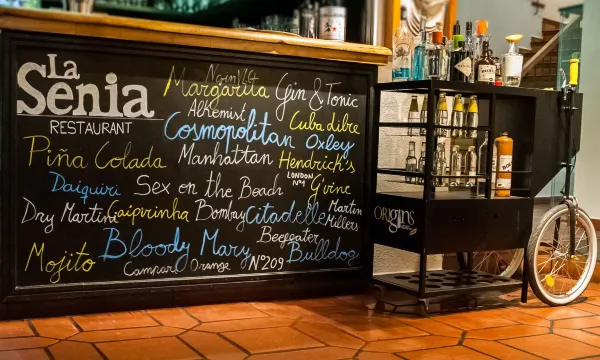 La
Senia
RESTAURANT
Margarita Nginvlg Gin & Tonic
Alkemist
Cosmopolitan Cuba dibre
Oxley
Piña Colada Manhattan Hendrick's
Daiquiri Sex on the Beach LONDON Nº1 G'vine
Dry Martini Caipirinha Bombay Citadelle Martin Millers
Mojito Bloody Mary Beefeater Bulldog
Campari Orange Nº209
ORIGINS